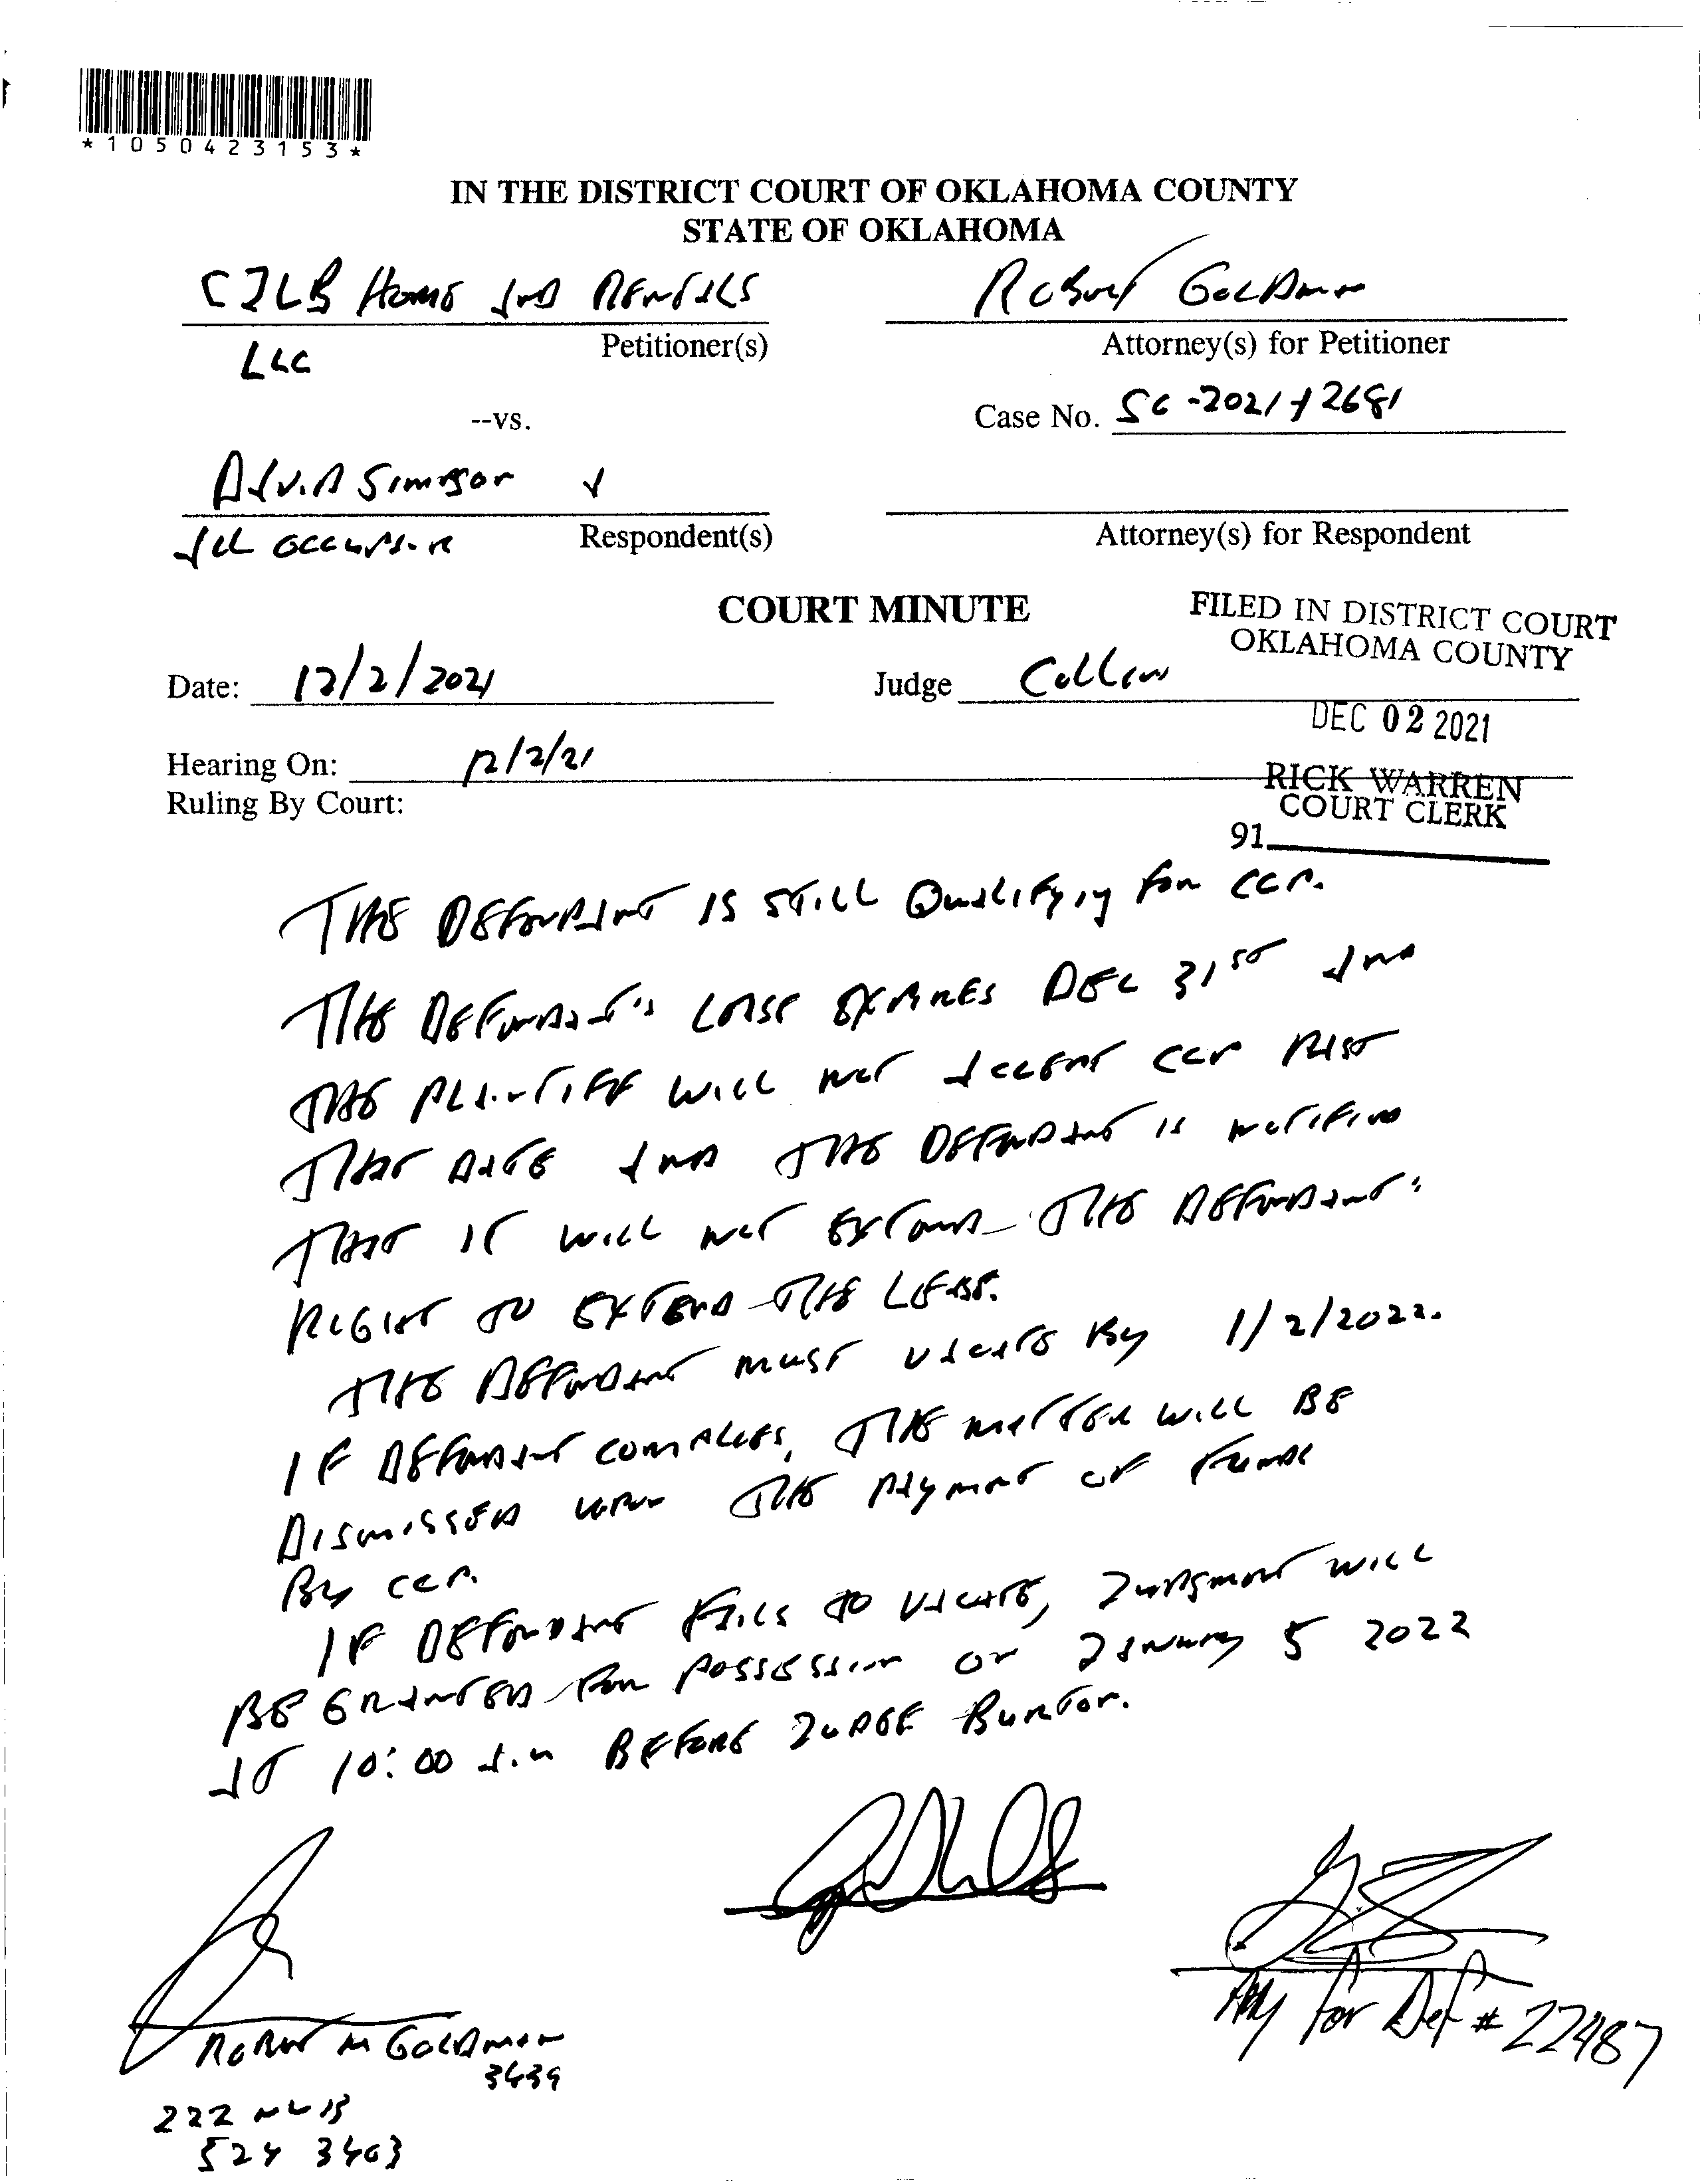 *1050423153*
IN THE DISTRICT COURT OF OKLAHOMA COUNTY
STATE OF OKLAHOMA
CJLB HOME AND RENTALS
ROBERT GOLDMAN
LLC
Petitioner(s)
Attorney(s) for Petitioner
--vs.
Case No. SC-2021-12681
DAVID SIMPSON &
ALL OCCUPANTS
Respondent(s)
Attorney(s) for Respondent
COURT MINUTE
FILED IN DISTRICT COURT
OKLAHOMA COUNTY
Date: 12/2/2021
Judge
DEC 02 2021
Hearing On: 12/2/21
RICK WARREN
COURT CLERK
Ruling By Court:
91
THE DEFENDANT IS STILL QUALIFYING FOR CCP.
THE DEFENDANT'S LEASE EXPIRES DEC 31ST AND
THE PLAINTIFF WILL NOT ACCEPT CCP PAST
THAT DATE AND THE DEFENDANT IS NOTIFIED
THAT IT WILL NOT EXTEND THE DEFENDANT'S
RIGHT TO EXTEND THE LEASE.
THE DEFENDANT MUST VACATE BY 1/2/2022.
IF DEFENDANT COMPLIES, THE MATTER WILL BE
DISMISSED UPON THE PAYMENT OF FUNDS
BY CCP.
IF DEFENDANT FAILS TO VACATE, JUDGMENT WILL
BE GRANTED FOR POSSESSION ON JANUARY 5 2022
AT 10:00 A.M BEFORE JUDGE BURTON.
ROBERT M GOLDMAN
3439
Atty for Def # 22487
222 NW 13
524 3403